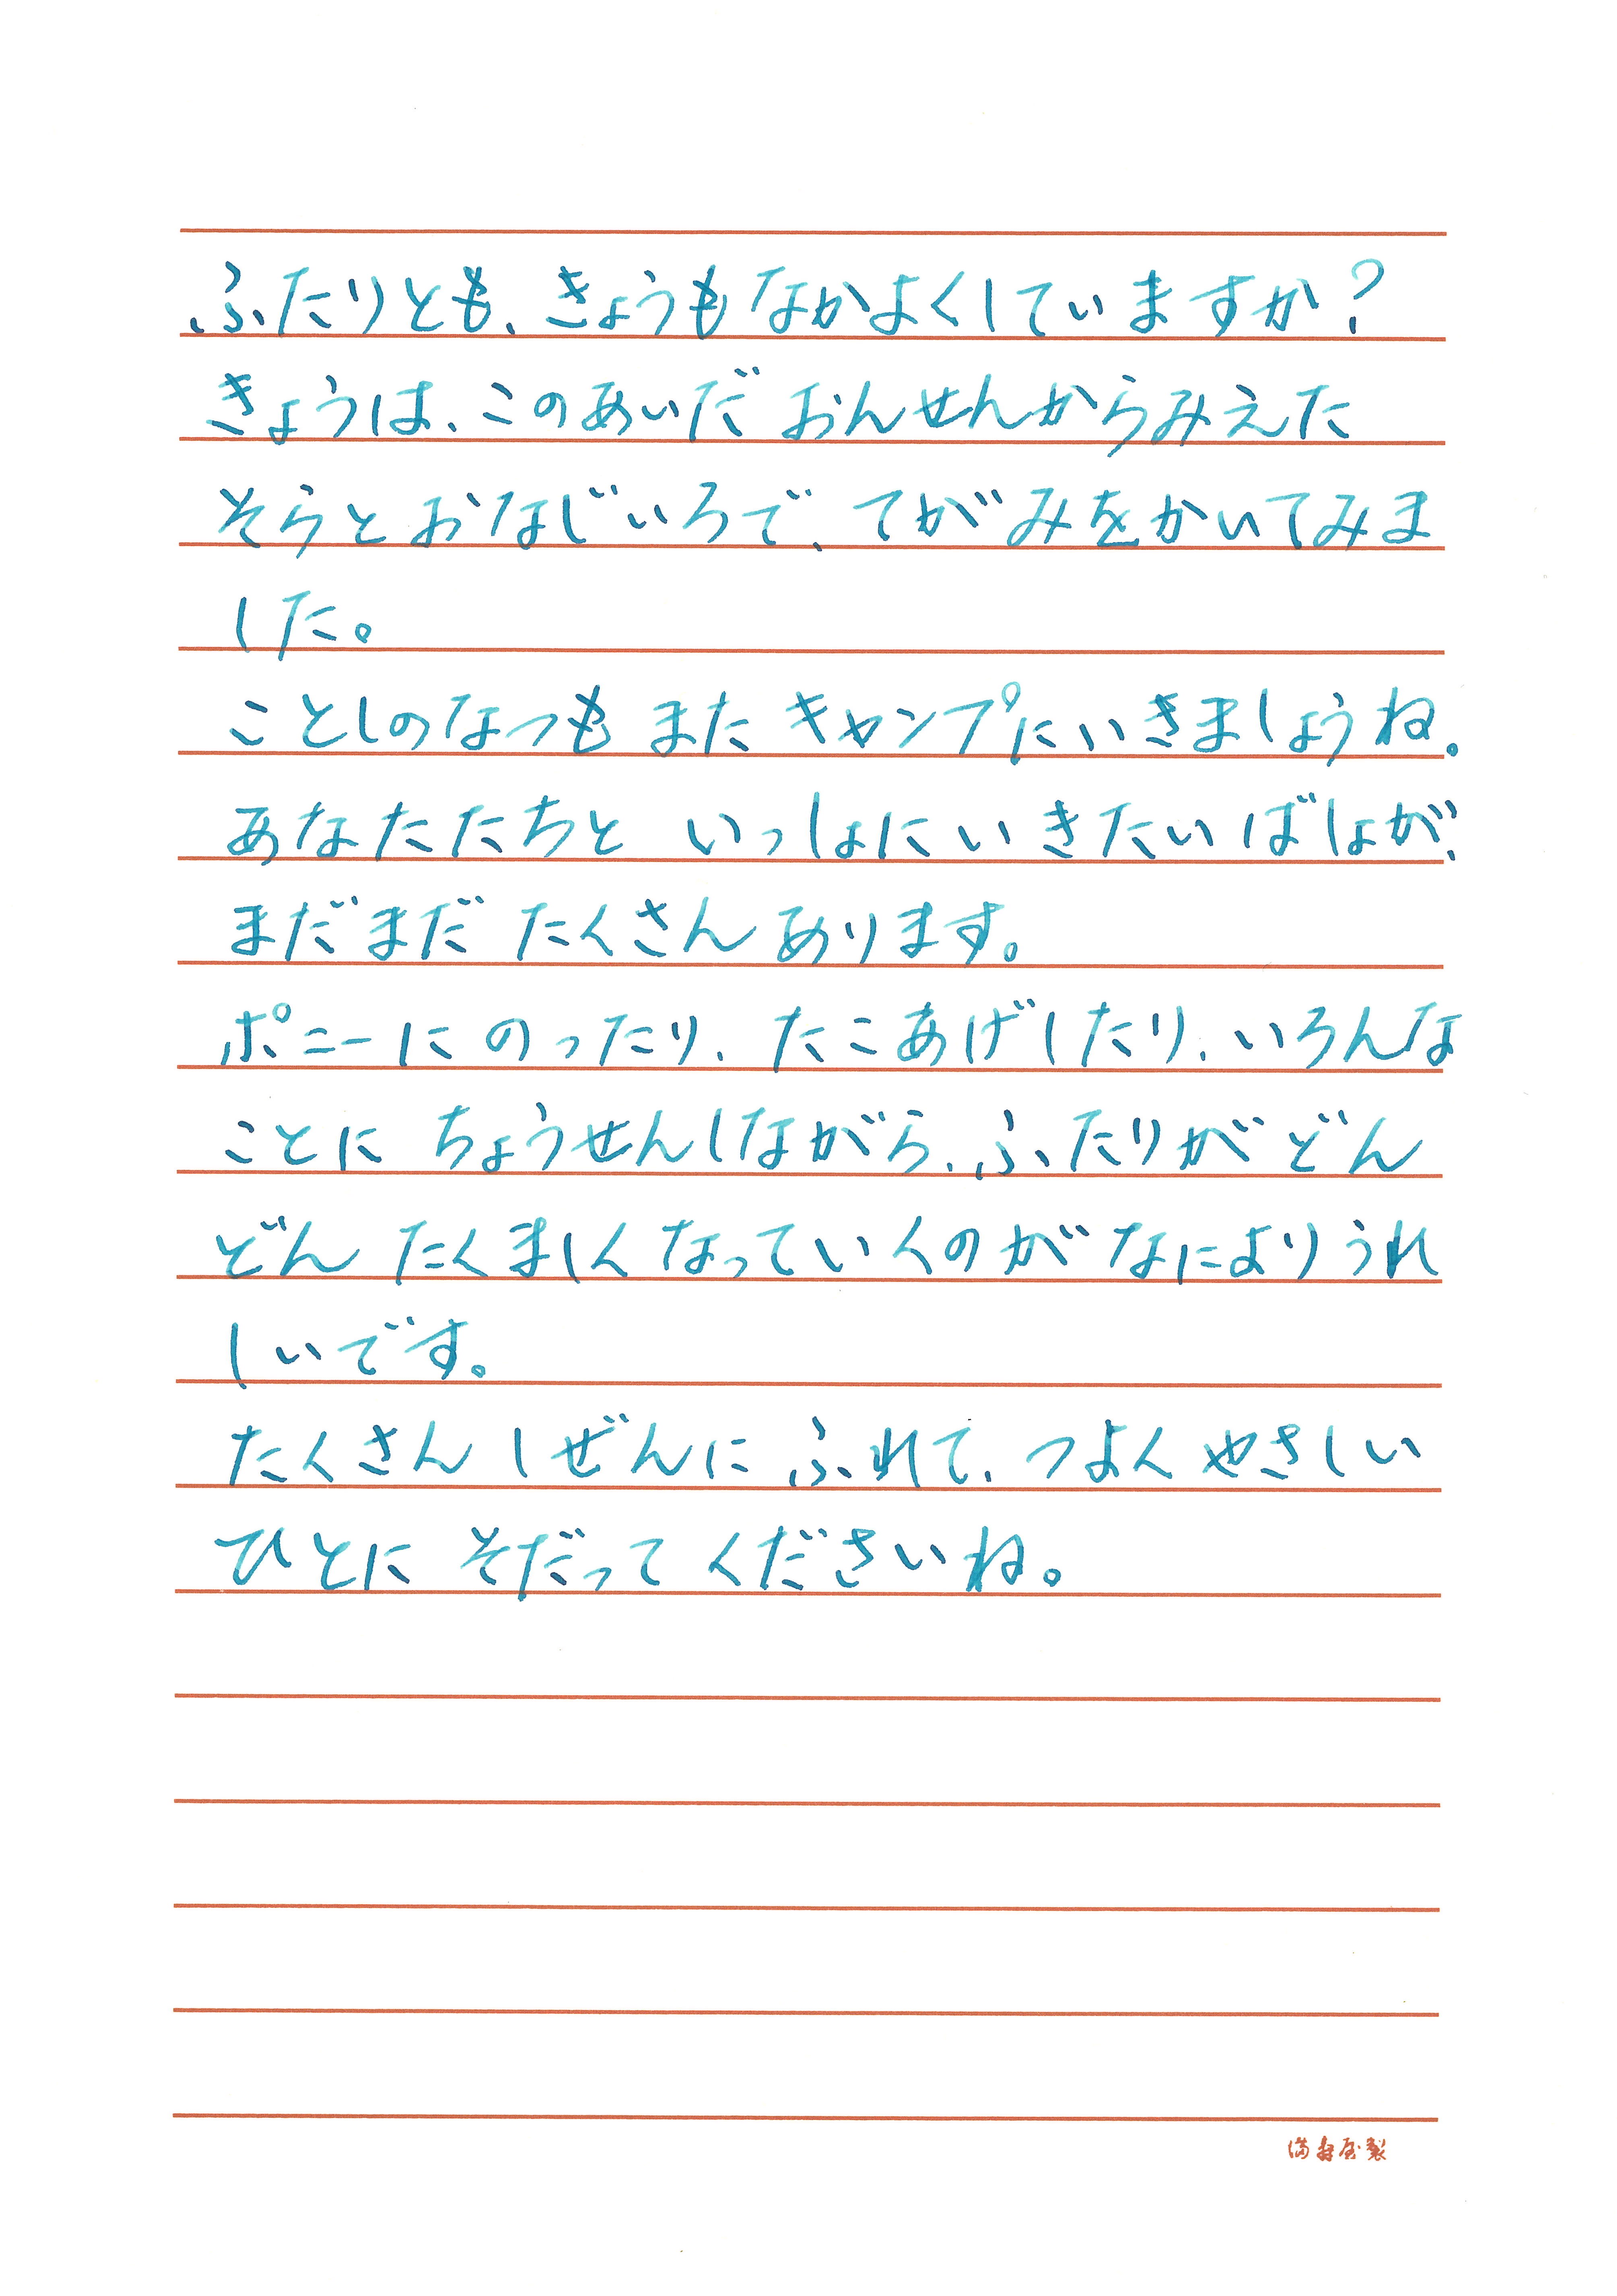 ふたりとも、きょうもなかよくしていますか?
きょうは、このあいだ おんせんからみえた
そらとおなじいろで、てがみをかいてみま
した。
ことしのなつも また キャンプにいきましょうね。
あなたたちと いっしょにいきたいばしょが、
まだまだ たくさん あります。
ポニーに のったり、たこあげしたり、いろんな
ことに ちょうせんしながら、ふたりがどん
どん たくましく なっていくのが なによりうれ
しいです。
たくさん しぜんに ふれて、つよく やさしい
ひとに そだって くださいね。
満寿屋製